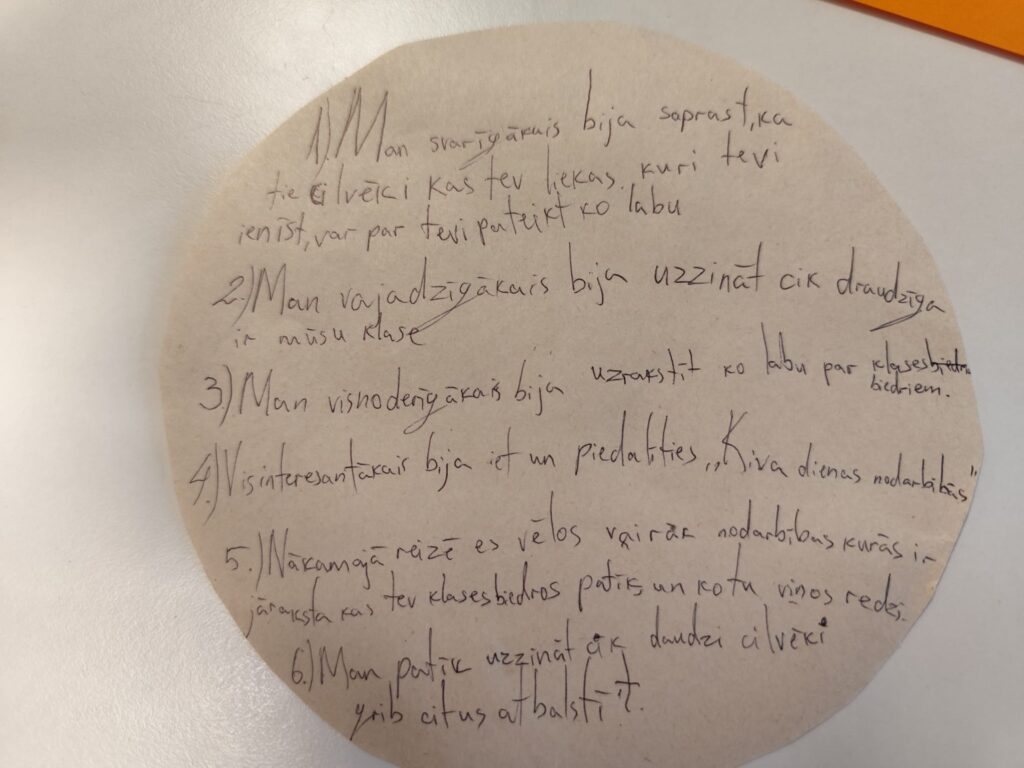 1) Man svarīgākais bija saprast, ka
tie cilvēki kas tev liekas, kuri tevi
ienīst, var par tevi pateikt ko labu
2.) Man vajadzīgākais bija uzzināt cik draudzīga
ir mūsu klase
3.) Man visnoderīgākais bija uzrakstīt ko labu par klases
biedriem.
4.) Visinteresantākais bija iet un piedalīties „Kiva dienas nodarbībās"
5.) Nākamajā reizē es vēlos vairāk nodarbības kurās ir
jāraksta kas tev klasesbiedros patīk un ko tu viņos redzi.
6.) Man patīk uzzināt cik daudzi cilvēki
grib citus atbalstīt.